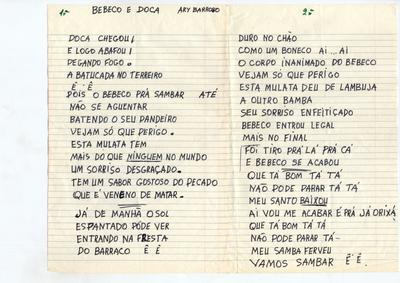 1º
BEBECO E DOCA ARY BARROSO
DOCA CHEGOU!
E LOGO ABAFOU!
PEGANDO FOGO.
A BATUCADA NO TERREIRO
Ê Ê
POIS O BEBECO PRÁ SAMBAR ATÉ
NÃO SE AGUENTAR
BATENDO O SEU PANDEIRO
VEJAM SÓ QUE PERIGO.
ESTA MULATA TEM
MAIS DO QUE NINGUEM NO MUNDO
UM SORRISO DESGRAÇADO.
TEM UM SABOR GOSTOSO DO PECADO
QUE É VENENO DE MATAR.
JÁ DE MANHÃ O SOL
ESPANTADO PÔDE VER
ENTRANDO NA FRESTA
DO BARRACO Ê Ê
2º
DURO NO CHÃO
COMO UM BONECO AI... AI
O CORPO INANIMADO DO BEBECO
VEJAM SÓ QUE PERIGO
ESTA MULATA DEU DE LAMBUJA
A OUTRO BAMBA
SEU SORRISO ENFEITIÇADO
BEBECO ENTROU LEGAL
MAIS NO FINAL
FOI TIRO PRÁ LÁ PRÁ CÁ
E BEBECO SE ACABOU
QUE TÁ BOM TÁ TÁ
NÃO PODE PARAR TÁ TÁ
MEU SANTO BAIXOU
AI VOU ME ACABAR É PRÁ JÁ ORIXÁ
QUE TÁ BOM TÁ TÁ
NÃO PODE PARAR TÁ-
MEU SAMBA FERVEU
VAMOS SAMBAR Ê Ê.